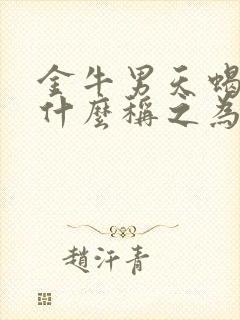 金牛男天蝎
什麼稱之為
趙汗青